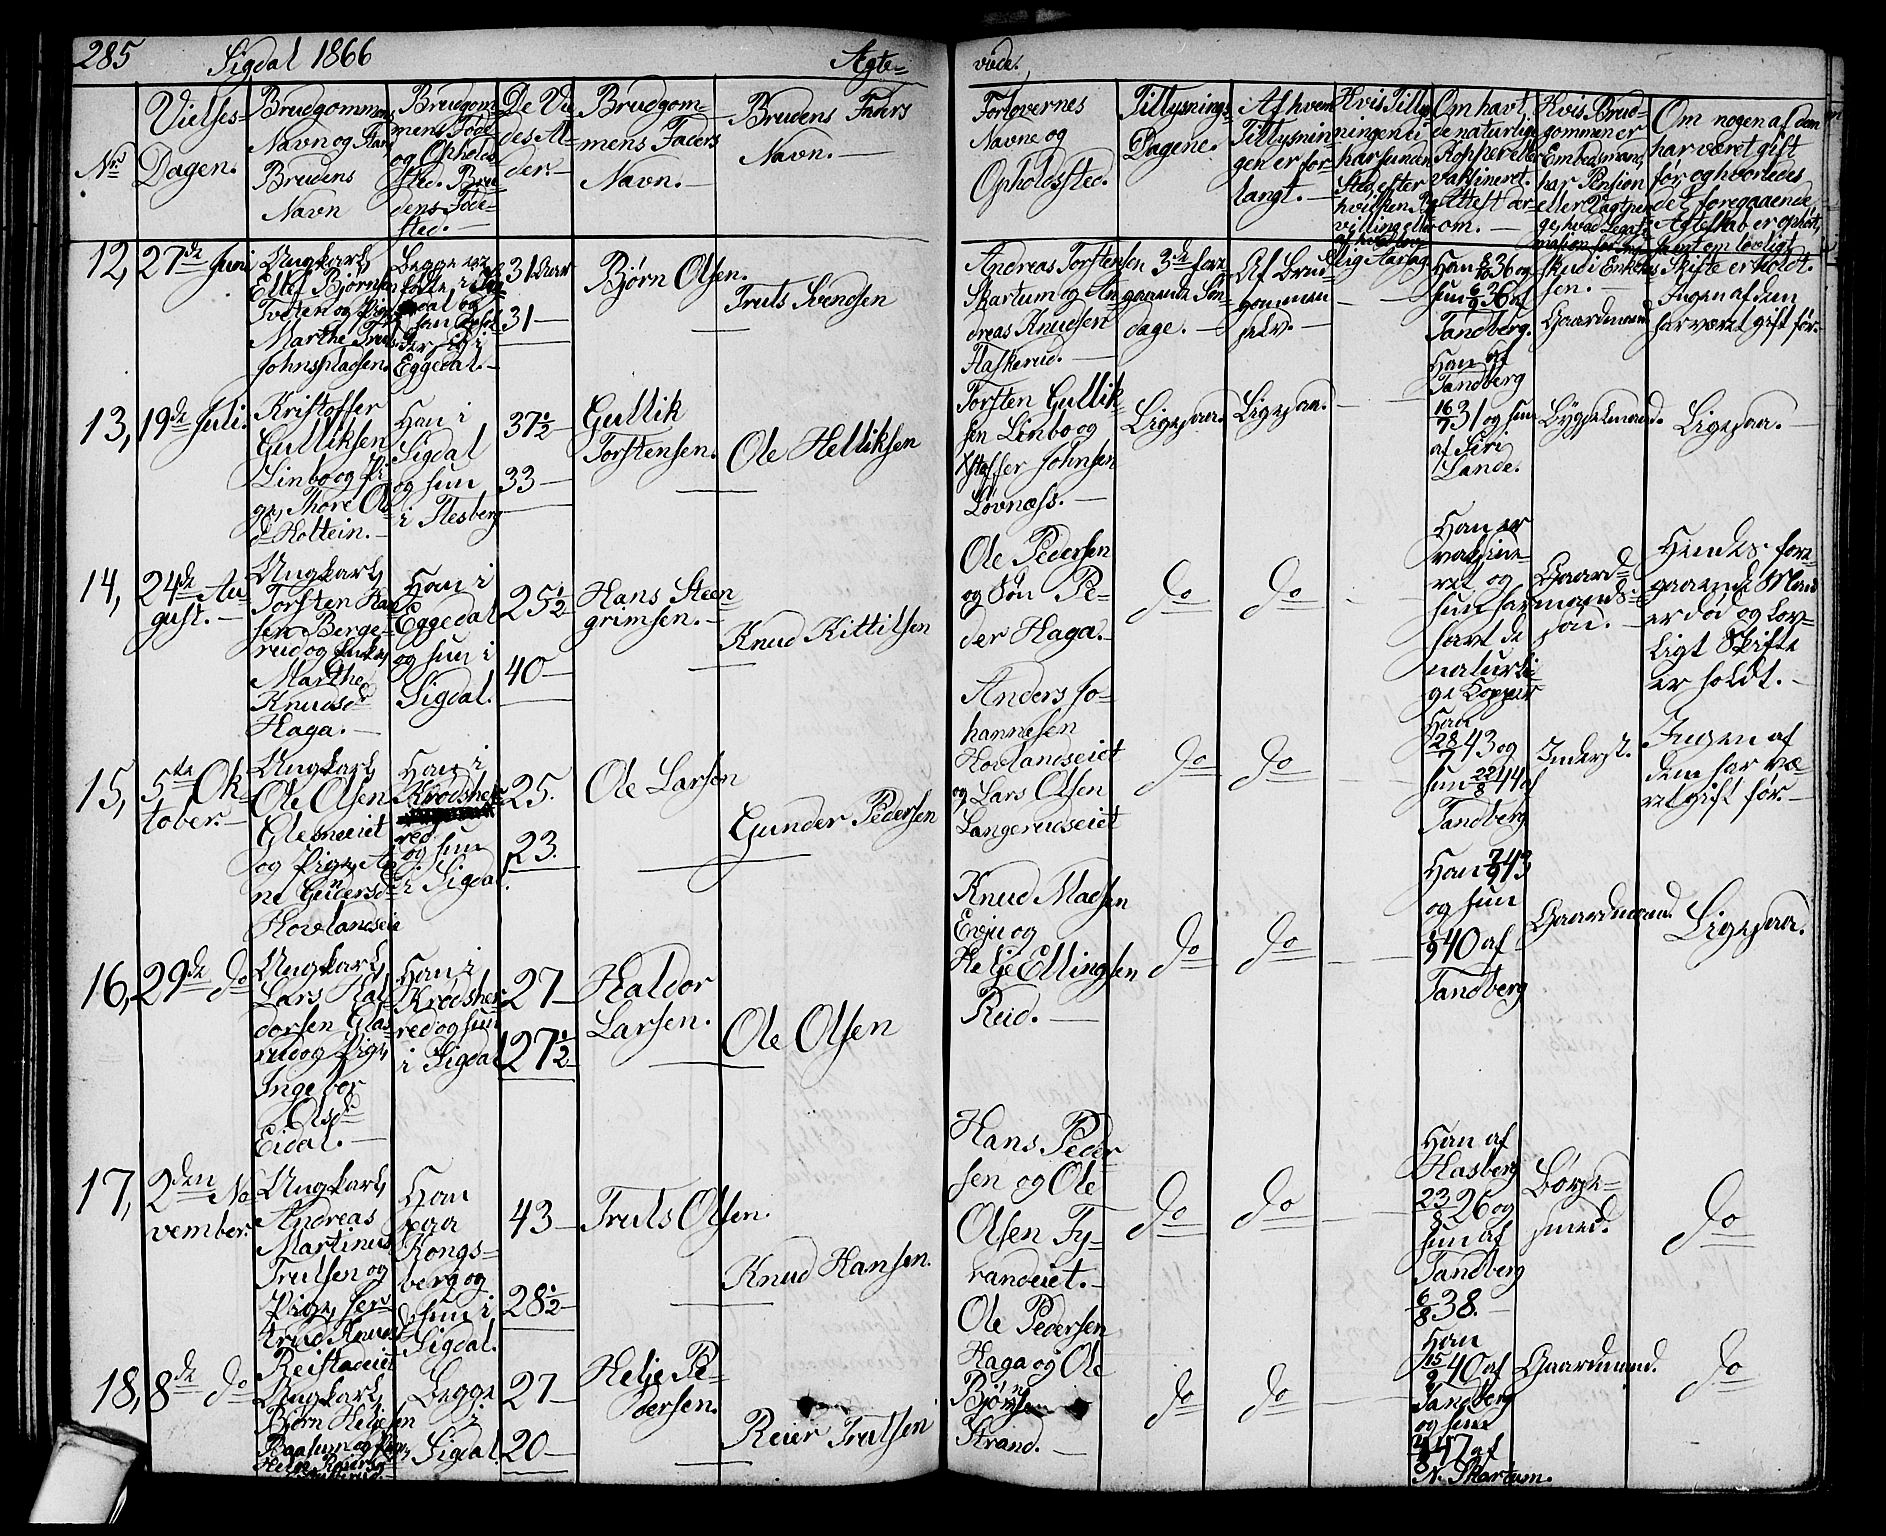 285 Sigdal 1866 Ægte-
viede.
Nr.
Vielses-
Dagen.
Brudgommens
Navn og Stand
Brudens
Navn
Brudgom-
mens Føde
og Opholds
sted. Bru
dens Føde-
sted.
De Vi
des Al-
der.
Brudgom-
mens Faders
Navn.
Brudens Faders
Navn.
Forlovernes
Navne og
Opholdssted.
Tillysnings-
Dagene.
Af hvem
Tillysnin
gen er for-
langt.
Hvis Tillys
ningen ei
har funden
Sted efter
hvilken Be
villing eller
Om havt
de naturlige
Kopper eller
vaksineret.
Attest der-
om.
Hvis Brud-
gommen er
Embedsmand,
har Pension
eller Vagtpen
ge, hvad Legi-
Om nogen af dem
har været gift
før og hvorledes
det foregaaende
Ægteskab er ophørt,
samt om lovligt
Skifte er holdt.
12, 27de Juni
Ungkarl
Ellef Bjørnsen
Tveten og Pige
Marthe Truls
Johnspladsen.
Begge ere
fødte i Sig
dal og
han
Eggedal.
31 Aar
31
Bjørn Olsen.
Truls Svendsen
Andreas Torstensen
Skartum og An
dreas Knudsen
Flaskerud.
3de fore
gaaende Søn
dage.
Af Brud
gommen
selv.
Han 8/10 36 og
hun 6/9 36 af
Tandberg.
Skudi Enkes
søn.
Gaardmand
Ingen af dem
har været gift før.
13, 19de Juli.
Kristoffer
Gulliksen
Linbo og Pi
ge, Thore Ols
d. Holtein.
Han i
Sigdal
og hun
i Flesberg
37½
33
Gullik
Torstensen.
Ole Helliksen
Torsten Gullik-
sen Linbo og
Kstoffer Johnsen
Løvnæss.
Ligesaa.
Ligesaa.
Han af
Tandberg
16/7 31 og hun
af Sire
Lande.
Byggelmand.
Ligesaa.
14, 24de Au-
gust.
Ungkarl
Torsten Han
sen Berge-
rud og Enke,
Marthe
Knudsd
Haga.
Han i
Eggedal
og hun i
Sigdal.
25½
40
Hans Steen-
grimsen.
Knud Kittilsen
Ole Pedersen
og Søn Pe-
der Haga.
do
do
Han er
vaksine-
ret og
hun har
havt de
naturli-
ge Kopper
Gaard-
mands-
søn.
Hendes fore
gaaende Mand
er død og lov-
ligt Skifte
er holdt.
15, 5te Ok-
tober.
Ungkarl
Ole Olsen
Glesneeiet
og Pige, An
ne Gundersd
Hovlandseie
Han i
Krødshe
red
og hun
i Sigdal.
25.
23.
Ole Larsen
Gunder Pedersen
Anders Jo-
hannesen
Hovlandseiet
og Lars Olsen
Langerudseiet
do
do
Han
28/7 43 og
hun 22/8 44 af
Tandberg
Inderst.
Ingen af
dem har væ-
ret gift før.
16, 29de do
Ungkarl
Lars Hal
dorsen Glas
rud og Pige,
Ingebor
Olsd
Eidal.
Han i
Krødshe
red og hun
i Sigdal
27
27½
Haldor
Larsen.
Ole Olsen
Knud Madsen
Enju og
Helje Ellingsen
Reid.
do
do
Han 7/9 43
og hun
40 af
Tandberg
Gaardmand.
Ligesaa.
17, 2den No
vember.
Ungkarl
Andreas
Martinus
Trulsen og
Pige, Ger
trud Knuds
Reistadeiet
Han
paa
Kongs-
berg og
hun i
Sigdal.
43
28½
Truls Olsen.
Knud Hansen.
Hans Peder
sen og Ole
Olsen Fy-
randeiet.
do
do
Han af
Hasberg
23/8 26 og
hun af
Tandberg
6/8 38.
Børse-
smed.
do
18, 8de do
Ungkarl
Bjørn Heljesen
Baasum og Pige,
Begge
i
Sigdal
27
20
Helje Pe-
dersen.
Reier Trulsen
Ole Pedersen
Haga og Ole
Bjørnsen
Strand.
do
do
Han
15/2 40 af
Tandberg
og hun
47 af
N. Skartum.
Gaardmand.
do